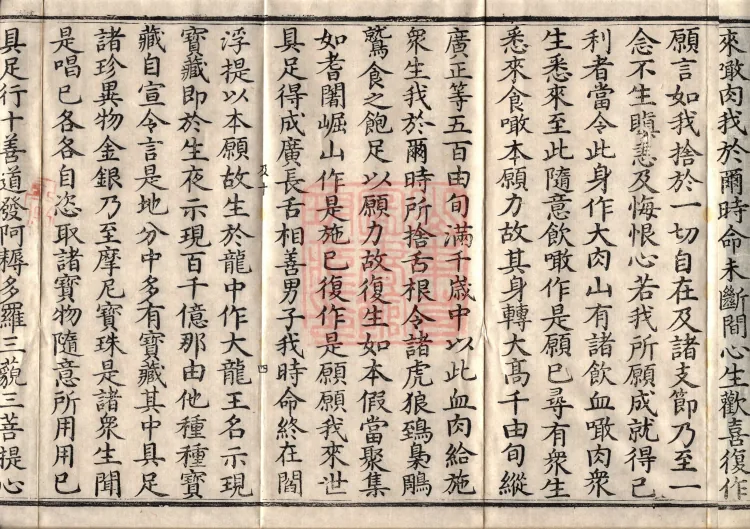 來噉肉我於爾時命未斷間心生歡喜復作
願言如我捨於一切自在及諸支節乃至一
念不生瞋恚及悔恨心若我所願成就得已
利者當令此身作大肉山有諸飲血噉肉衆
生悉來至此隨意飲噉作是願已尋有衆生
悉來食噉本願力故其身轉大高千由旬縱
廣正等五百由旬滿千歲中以此血肉給施
衆生我於爾時所捨舌根令諸虎狼鵄梟鵰
鷲食之飽足以願力故復生如本假當聚集
如耆闍崛山作是施已復作是願願我來世
具足得成廣長舌相善男子我時命終在閻
浮提以本願故生於龍中作大龍王名示現
寶藏即於生夜示現百千億那由他種種寶
藏自宣令言是地分中多有寶藏其中具足
諸珍異物金銀乃至摩尼寶珠是諸衆生聞
是唱已各各自恣取諸寶物隨意所用用已
具足行十善道發阿耨多羅三藐三菩提心
四